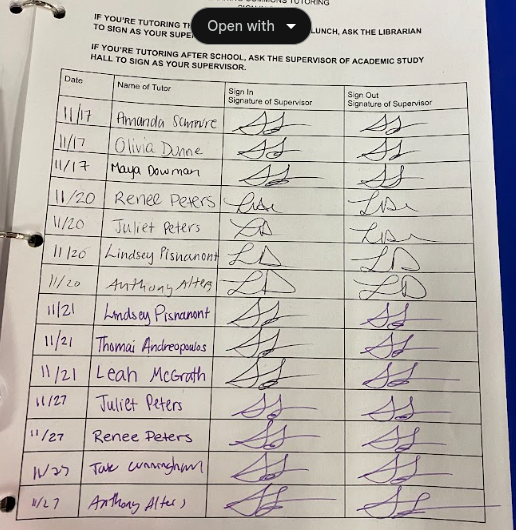 COMMONS TUTORING
IF YOU'RE TUTORING LUNCH, ASK THE LIBRARIAN
TO SIGN AS YOUR
Open with
IF YOU'RE TUTORING AFTER SCHOOL, ASK THE SUPERVISOR OF ACADEMIC STUDY
HALL TO SIGN AS YOUR SUPERVISOR.
Date Name of Tutor Sign In Signature of Supervisor Sign Out Signature of Supervisor
11/17 Amanda
11/17 Olivia Dunne
11/17 Maya Dowman
11/20 Renee Peters
11/20 Juliet Peters
11/20 Lindsey Pisnanont LD LD
11/20 Anthony Alters LD LD
11/21 Lindsey Pisnanont
11/21 Thomai Andreopoulos
11/21 Leah McGrath
11/27 Juliet Peters
11/27 Renee Peters
11/27 Jake Cunningham
11/27 Anthony Alters